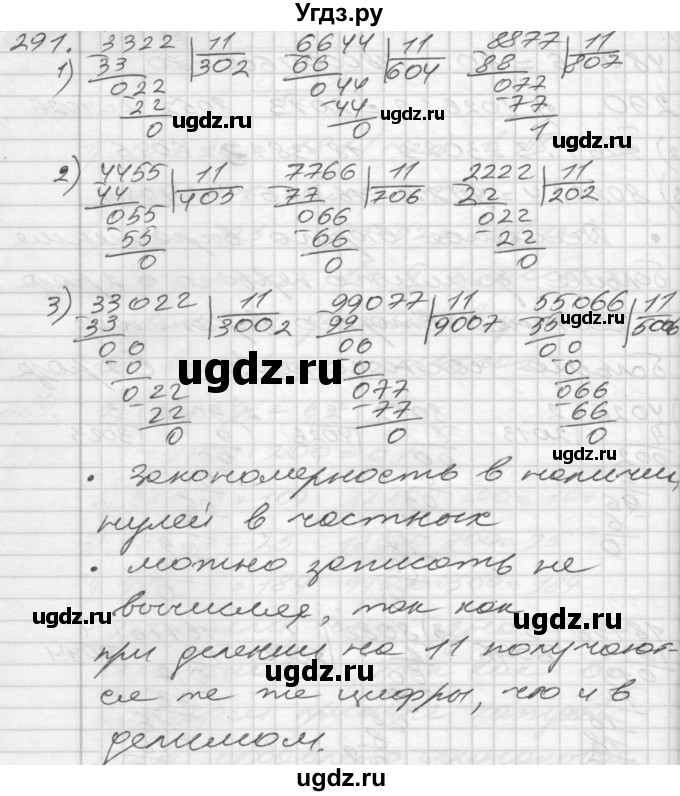 Угдз.ру
291.
1) 3322 | 11 6644 | 11 8877 | 11
33 302 66 604 88 807
022 044 077
-22 -44 -77
0 0 1
ugdz.ru ugdz.ru ugdz.ru
2) 4455 | 11 7766 | 11 2222 | 11
44 405 77 706 22 202
055 066 022
-55 -66 -22
0 0 0
ugdz.ru ugdz.ru
3) 33022 | 11 99077 | 11 55066 | 11
33 3002 99 9007 55 5006
00 00 00
-0 -0 -0
022 077 066
-22 -77 -66
0 0 0
ugdz.ru ugdz.ru ugdz.ru ugdz.ru
• Закономерность в наличии
нулей в частных
• можно записать не
вычисляя, так как
при делении на 11 получают-
ся те же цифры, что и в
делимом.
ugdz.ru ugdz.ru ugdz.ru
ugdz.ru ugdz.ru
ugdz.ru
ugdz.ru